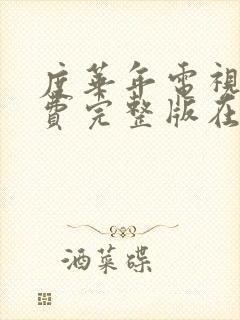 度華年電視
費完整版在
酒菜碟